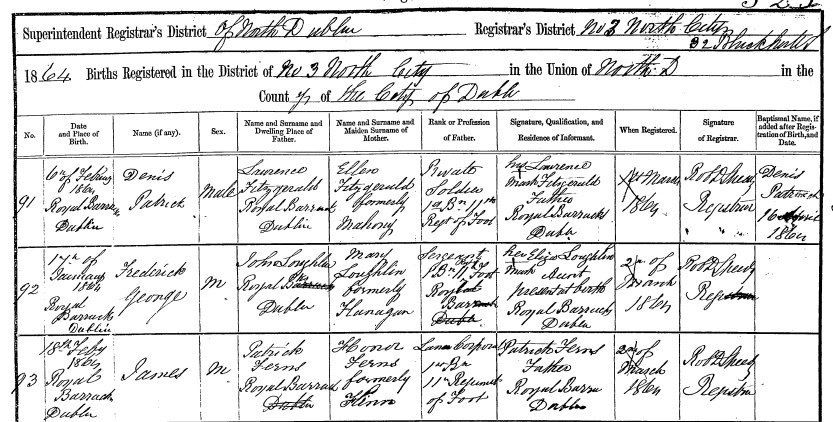 Superintendent Registrar's District of North Dublin Registrar's District No 3 North City
32 Blackhall St
1864 Births Registered in the District of No 3 North City in the Union of North D in the
County of the City of Dublin
No. Date and Place of Birth. Name (if any). Sex. Name and Surname and Dwelling Place of Father. Name and Surname and Maiden Surname of Mother. Rank or Profession of Father. Signature, Qualification, and Residence of Informant. When Registered. Signature of Registrar. Baptismal Name, if added after Registration of Birth, and Date.
91
6th of Feby
1864
Royal Barrack
Dublin
Denis
Patrick
Male
Lawrence
Fitzgerald
Royal Barrack
Dublin
Ellen
Fitzgerald
formerly
Mahony
Private
Soldier
1st Bn 11th
Regt of Foot
his Lawrence
Mark Fitzgerald
Father
Royal Barracks
Dublin
1st March
1864
Robt Speedy
Registrar
Denis
Patrick
16 April
1864
92
17th of
January
1864
Royal
Barrack
Dublin
Frederick
George
M
John Loughlin
Royal Barrack
Dublin
Mary
Loughlin
formerly
Flanagan
Sergeant
1 Bn 11th Foot
Royal
Barrack
Dublin
her Eliza Loughlin
Mark Aunt
present at birth
Royal Barracks
Dublin
2nd of
March
1864
Robt Speedy
Registrar
93
18th Feby
1864
Royal
Barrack
Dublin
James
M
Patrick
Ferns
Royal Barrack
Dublin
Honor
Ferns
formerly
Flinn
Lance Corporal
1st Bn
11th Regiment
of Foot
Patrick Ferns
Father
Royal Barra
Dublin
2nd of
March
1864
Robt Speedy
Registrar